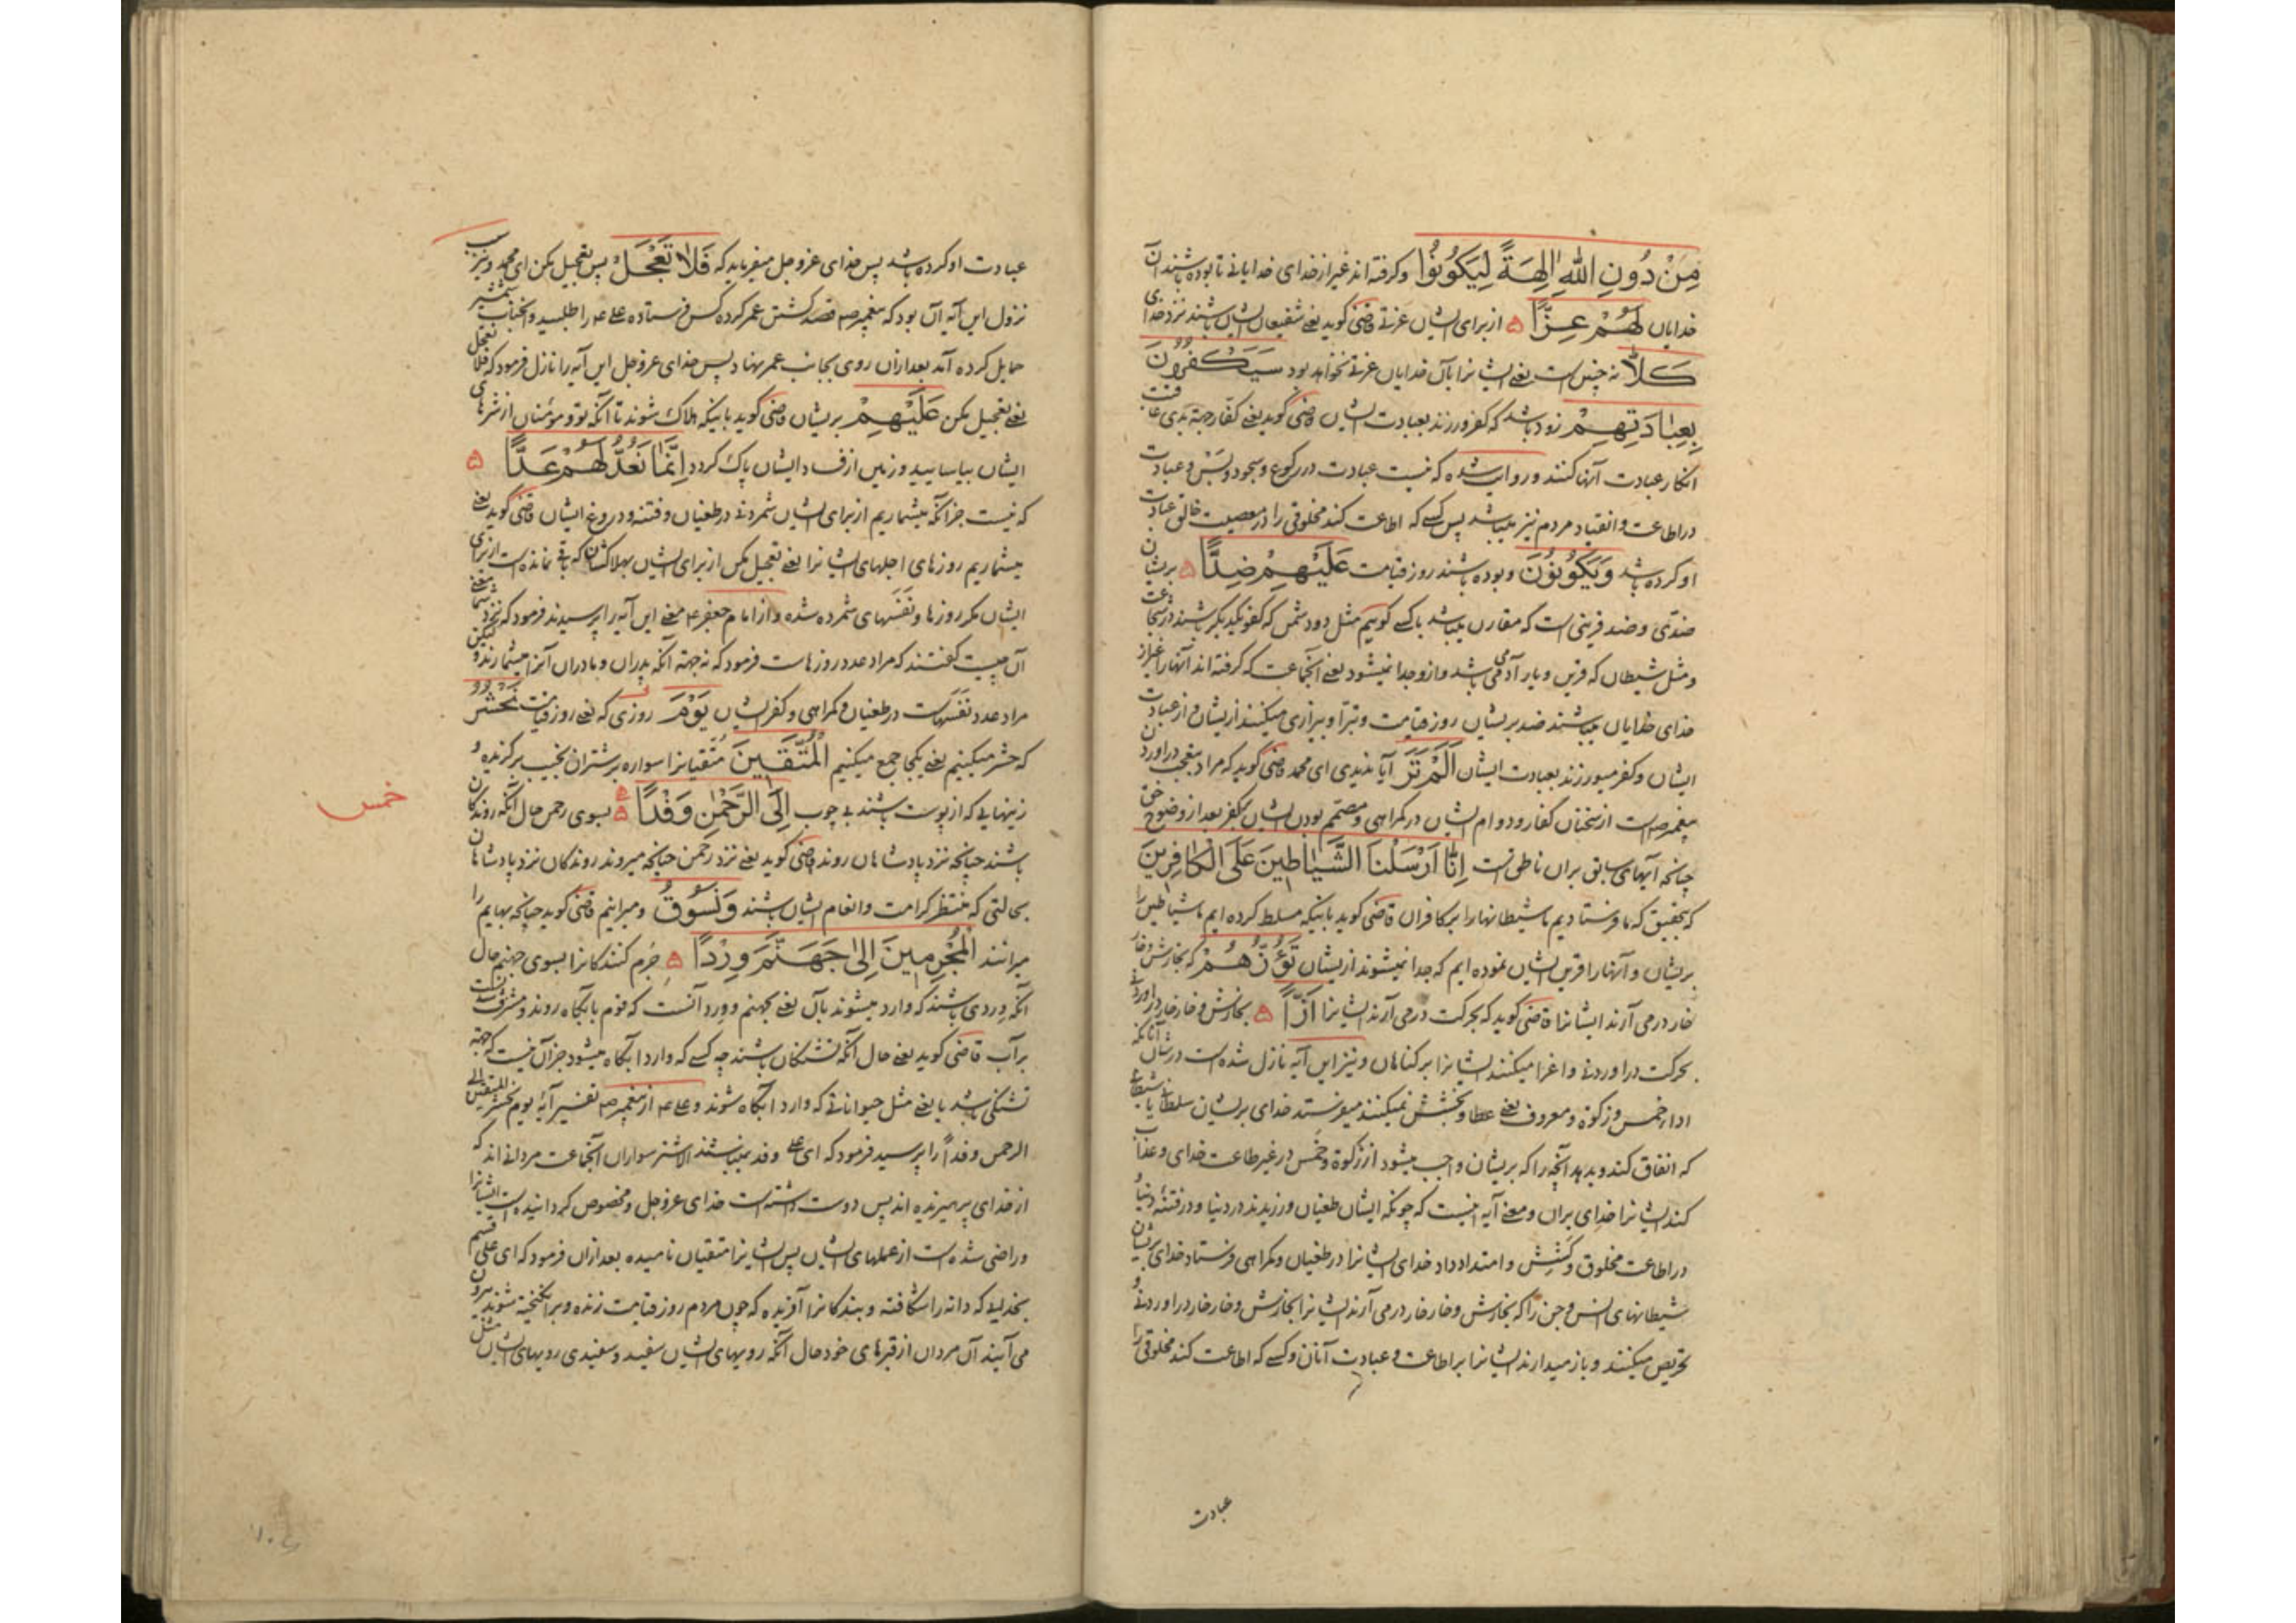 مِنْ دُونِ اللهِ اٰلِهَةً لِيَكُونُوا وکرفته اند غیر از خدای خدایانی تا بوده باشند آن
خدایان لَهُمْ عِزًّا از برای ایشان عزتی قاضی کوید یعنی شفیعان ایشان باشند نزد خدای
كَلَّا نه چنین است یعنی ایشانرا بآن خدایان عزتی نخواهد بود سَيَكْفُرُونَ
بِعِبَادَتِهِمْ زود باشد که کفر ورزند بعبادت ایشان قاضی کوید یعنی کفار جهة بدی عاقبت
انکار عبادت آنها کنند و روایت شده که نیست عبادت در رکوع و سجود و بس و عبادت
در اطاعت و انقیاد مردم نیز میباشد پس کسی که اطاعت کند مخلوقی را در معصیت خالق عبادت
او کرده باشد وَيَكُونُونَ و بوده باشند روز قیامت عَلَيْهِمْ ضِدًّا بریشان
ضدّی و ضد قرینی است که مقارن میباشد با کسی کوییم مثل دو دشمن که کفو یکدیکر باشند در شجاعت
و مثل شیطان که قرین و یار آدمی می باشد و ازو جدا نمیشود یعنی آنجماعت که کرفته اند آنهارا غیر از
خدای خدایان میباشند ضد بریشان روز قیامت و تبرّا و بیزاری میکنند ازیشان و از عبادت
ایشان و کفر میورزند بعبادت ایشان اَلَمْ تَرَ آیا ندیدی ای محمد قاضی کوید که مراد بتعجب دراوردن
پیغمبر ص است از سخنان کفار و دوام ایشان در کمراهی و مصمّم بودن ایشان بکفر بعد از وضوح حق
چنانچه آیهای سابق بران ناطق است اِنَّا اَرْسَلْنَا الشَّيَاطِينَ عَلَى الْكَافِرِينَ
که بتحقیق که ما فرستادیم ما شیطانهارا بر کافران قاضی کوید باینکه مسلط کرده ایم ما شیاطین را
بریشان و آنهارا قرین ایشان نموده ایم که جدا نمیشوند ازیشان تَؤُزُّهُمْ که بخارش و خار
خار درمی آرند ایشانرا قاضی کوید که بحرکت درمی آرند ایشانرا اَزًّا بخارش و خارخار دراوردنی
بحرکت دراوردنی و اغرا میکنند ایشانرا بر کناهان و نیز این آیه نازل شده است در شأن آنانکه
ادا خمس و زکوة و معروف یعنی عطا و بخشش نمیکنند میفرستد خدای بریشان سلطانی یا شیطانی
که انفاق کند و بدهد آنچه را که بریشان واجب میشود از زکوة و خمس در غیر طاعت خدای و عذاب
کند ایشانرا خدای بران و معنی آیه اینست که چونکه ایشان طغیان ورزیدند در دنیا و در فتنهٔ دنیا و
در اطاعت مخلوق و کشش و امتداد داد خدای ایشانرا در طغیان و کمراهی و فرستاد خدای بریشان
شیطانهای انس و جن را که بخارش و خارخار درمی آرند ایشانرا بخارش و خارخار دراوردنی و
تحریص میکنند و باز میدارند ایشانرا بر اطاعت و عبادت آنان و کسی که اطاعت کند مخلوقی را
عبادت
عبادت او کرده باشد پس خدای عز و جل میفرماید که فَلَا تَعْجَلْ پس تعجیل مکن ای محمد و سبب
نزول این آیه آن بود که پیغمبر ص قصد کشتن عمر کرده کس فرستاده علی ع را طلبید و آنجناب شمشیر
حمایل کرده آمد بعد ازان روی بجانب عمر نهاد پس خدای عز و جل این آیه را نازل فرمود که فلا تعجل
یعنی تعجیل مکن عَلَيْهِمْ بریشان قاضی کوید باینکه هلاک شوند تا آنکه تو و مومنان از شرهای
ایشان بیاسایید و زمین از فساد ایشان پاک کردد اِنَّمَا نَعُدُّ لَهُمْ عَدًّا
که نیست جز آنکه میشماریم از برای ایشان شمردنی در طغیان و فتنه و دروغ ایشان قاضی کوید یعنی
میشماریم روزهای اجلهای ایشانرا یعنی تعجیل مکن از برای ایشان بهلاکشان که باقی نمانده است از برای
ایشان مکر روزها و نَفَسهای شمرده شده و از امام جعفر ع معنی این آیه را پرسیدند فرمود که نزد شما معنی
آن چیست کفتند که مراد عدد روزهاست فرمود که نه جهة آنکه پدران و مادران آنرا میشمارند و لیکن
مراد عدد نَفَسهاست در طغیان و کمراهی و کفر ایشان يَوْمَ روزی که یعنی روز قیامت نَحْشُرُ
که حشر میکنیم یعنی یکجا جمع میکنیم الْمُتَّقِينَ متّقیانرا سواره بر شتران نجیب برکزیده و
زینهایی که از پوست باشند بی چوب اِلَى الرَّحْمٰنِ وَفْدًا بسوی رحمن حال آنکه روندکان
باشند چنانچه نزد پادشاهان روند قاضی کوید یعنی نزد رحمن چنانچه میروند روندکان نزد پادشاهان
بحالتی که منتظر کرامت و انعام ایشان باشند وَنَسُوقُ و میرانیم قاضی کوید چنانچه بهایم را
میرانند الْمُجْرِمِينَ اِلٰى جَهَنَّمَ وِرْدًا جُرم کنندکانرا بسوی جهنم حال
آنکه وِردی باشند که وارد میشوند بآن یعنی بجهنم و وِرد آنست که قوم بآبکاه روند و مشرف شوند
برآب قاضی کوید یعنی حال آنکه تشنکان باشند چه کسی که وارد آبکاه میشود جز آن نیست که جهة
تشنکی باشد یا یعنی مثل حیواناتی که وارد آبکاه شوند و علی ع از پیغمبر ص تفسیر آیهٔ یوم نحشر المتقین الی
الرحمن وفداً را پرسید فرمود که ای علی وفد نمیباشند الا شتر سواران آنجماعت مردانی اند که
از خدای پرهیزیده اند پس دوست داشته است خدای عز و جل و مخصوص کردانیده است ایشانرا
و راضی شده است از عملهای ایشان پس ایشانرا متقیان نامیده بعد ازان فرمود که ای علی قسم
بخدایی که دانه را شکافته و بندکانرا آفریده که چون مردم روز قیامت زنده و برانکیخته شوند بیرون
می آیند آن مردان از قبرهای خود حال آنکه رویهای ایشان سفید و سفیدی رویهای ایشان مثل
خمس